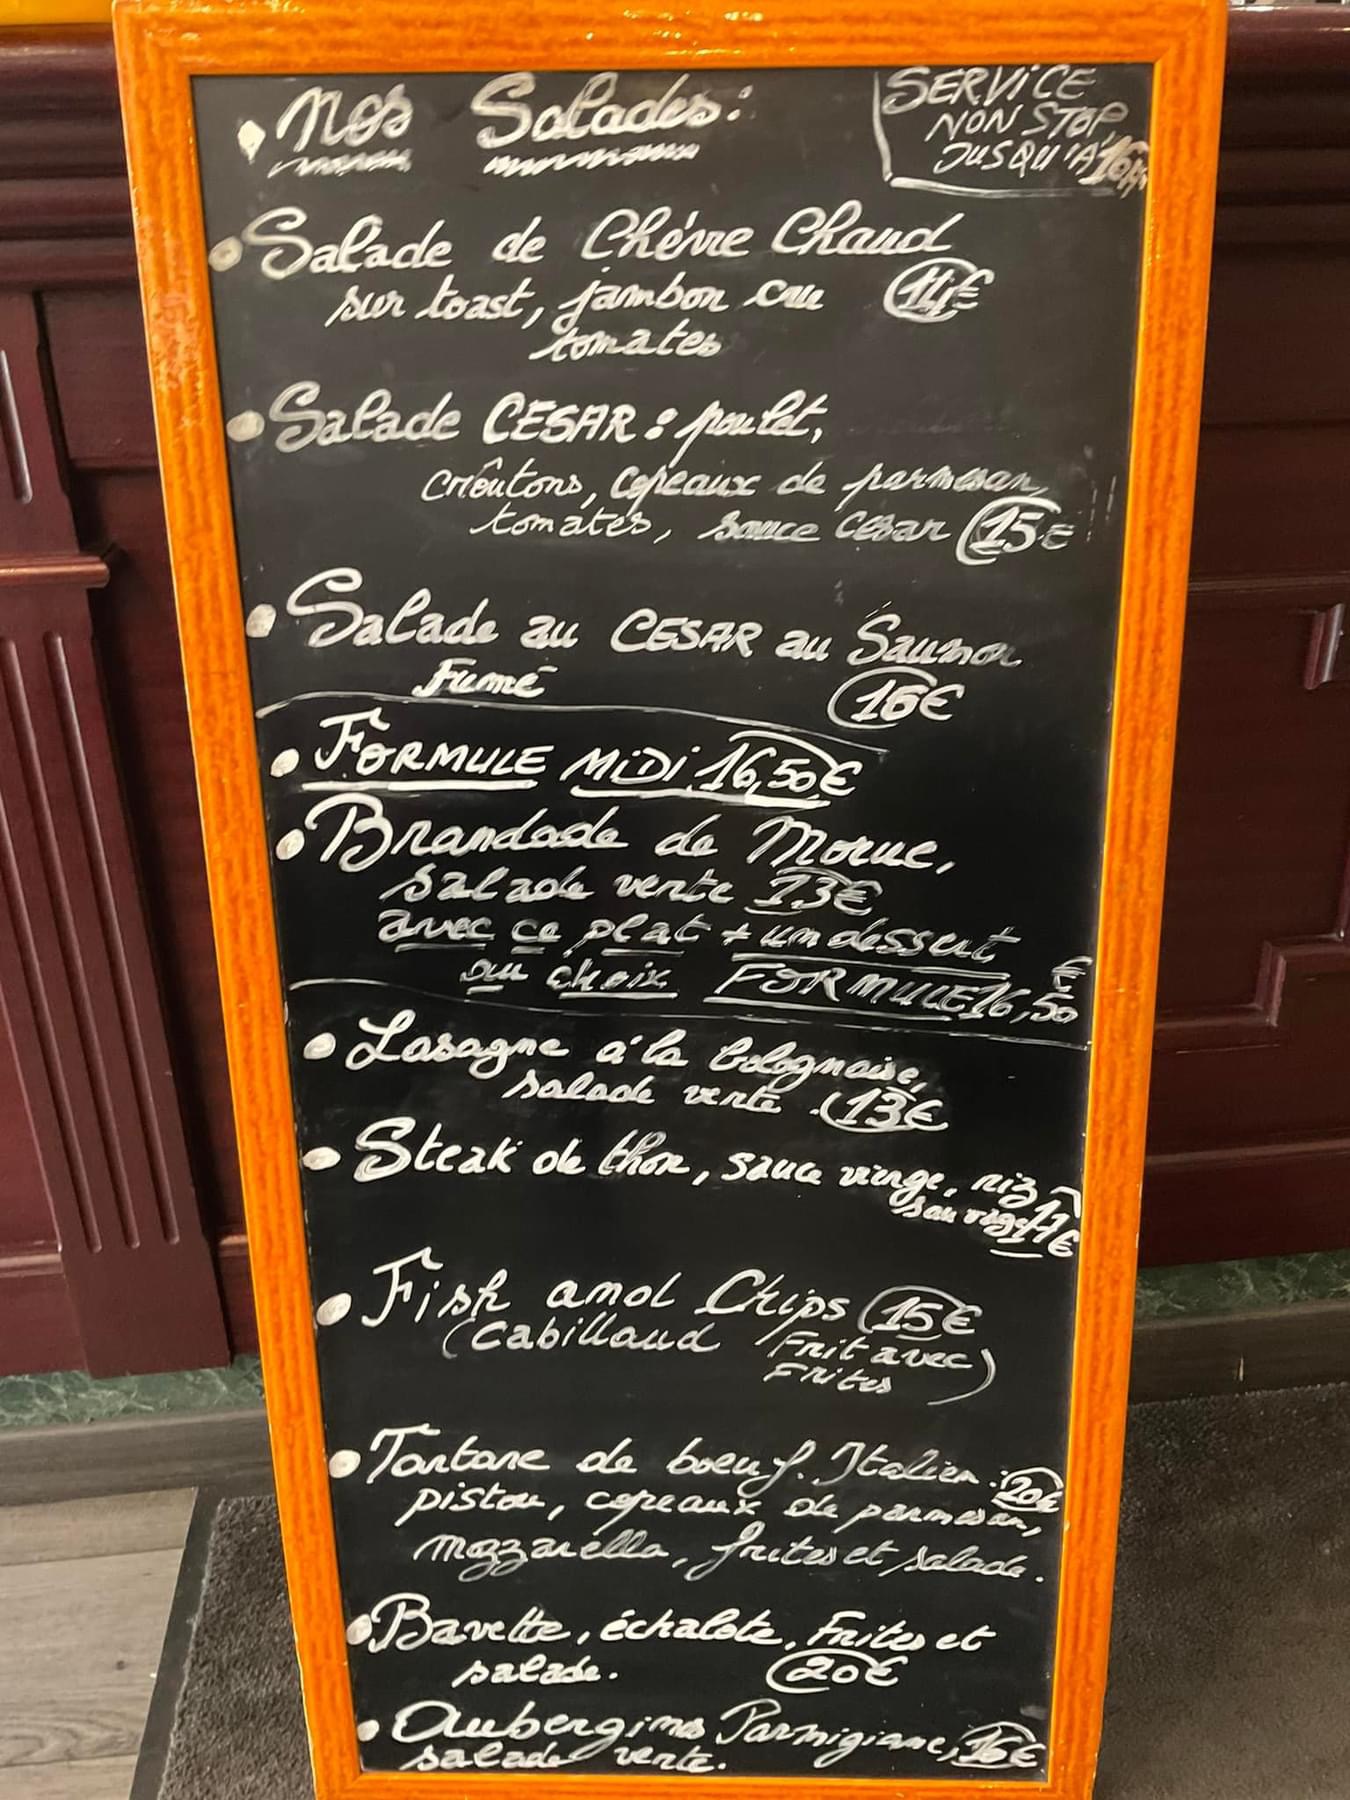 Nos Salades:
SERVICE
NON STOP
JUSQU'A 16H
Salade de Chèvre Chaud
sur toast, jambon cru 14€
tomates
Salade CESAR : poulet,
croûtons, copeaux de parmesan,
tomates, sauce cesar 15€
Salade au CESAR au Saumon
Fumé 16€
FORMULE MIDI 16,50€
Brandade de Morue,
salade verte 13€
avec ce plat + un dessert
au choix FORMULE 16,50€
Lasagne à la bolognaise,
salade verte. 13€
Steak de thon, sauce vierge, riz
sauvage 17€
Fish and Chips 15€
(Cabillaud Frit avec)
Frites
Tartare de boeuf. Italien : 20€
pistou, copeaux de parmesan,
mozzarella, frites et salade.
Bavette, échalote, Frites et
salade. 20€
Aubergines Parmigiane, 16€
salade verte.